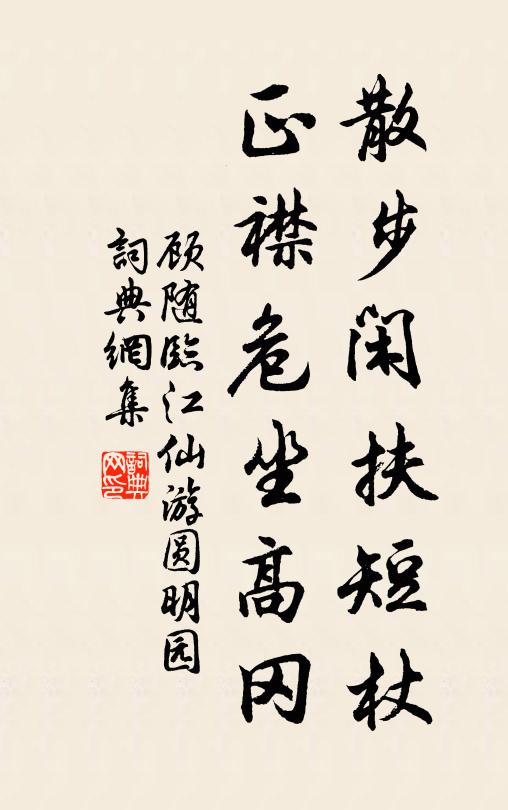 散步閑扶短杖
正襟危坐高冈
顾随临江仙游圆明园
詞典網集
詞典网印